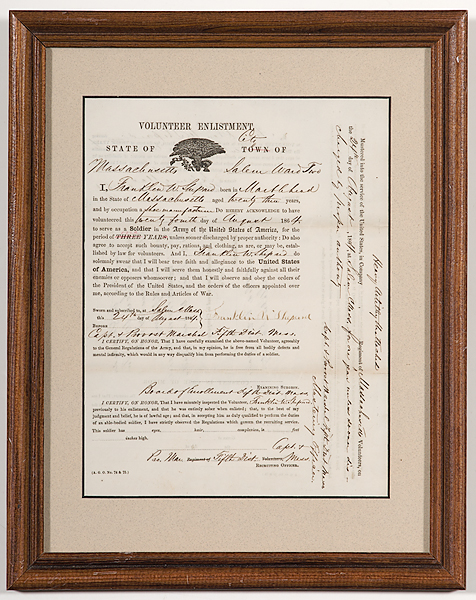 VOLUNTEER ENLISTMENT.
City
STATE OF TOWN OF
Massachusetts Salem Ward Two
I, Franklin W. Shepard born in Marblehead
in the State of Massachusetts aged twenty three years,
and by occupation a Shoemanufacturer Do HEREBY ACKNOWLEDGE to have
volunteered this twenty fourth day of August 1864
to serve as a Soldier in the Army of the United States of America, for the
period of THREE YEARS, unless sooner discharged by proper authority: Do also
agree to accept such bounty, pay, rations, and clothing, as are, or may be, estab-
lished by law for volunteers. And I, Franklin W. Shepard do
solemnly swear that I will bear true faith and allegiance to the United States
of America, and that I will serve them honestly and faithfully against all their
enemies or opposers whomsoever; and that I will observe and obey the orders of
the President of the United States, and the orders of the officers appointed over
me, according to the Rules and Articles of War.
Sworn and subscribed to, at Salem Mass
this 24th day of August 1864 Franklin W. Shepard
BEFORE
Capt. & Provost Marshal Fifth Dist. Mass.
I CERTIFY, ON HONOR, That I have carefully examined the above-named Volunteer, agreeably
to the General Regulations of the Army, and that, in my opinion, he is free from all bodily defects and
mental infirmity, which would in any way disqualify him from performing the duties of a soldier.
EXAMINING SURGEON.
Board of Enrollment Fifth Dist. Mass
I CERTIFY, ON HONOR, That I have minutely inspected the Volunteer, Franklin W. Shepard
previously to his enlistment, and that he was entirely sober when enlisted; that, to the best of my
judgment and belief, he is of lawful age; and that, in accepting him as duly qualified to perform the duties
of an able-bodied soldier, I have strictly observed the Regulations which govern the recruiting service.
This soldier has eyes, hair, complexion, is feet
inches high.
Capt. &
Pro. Mar. Regiment of Fifth Dist. Volunteers, Mass.
RECRUITING OFFICER.
(A. G. O. No. 74 & 75.)
Mustered into the service of the United States, in Company
Regiment of Massachusetts Volunteers, on
the 24th day of August 1864, at Salem Mass for one year unless sooner dis-
charged by proper authority.
Capt. & Provost Marshal Fifth Dist. Mass
Mustering Officer.